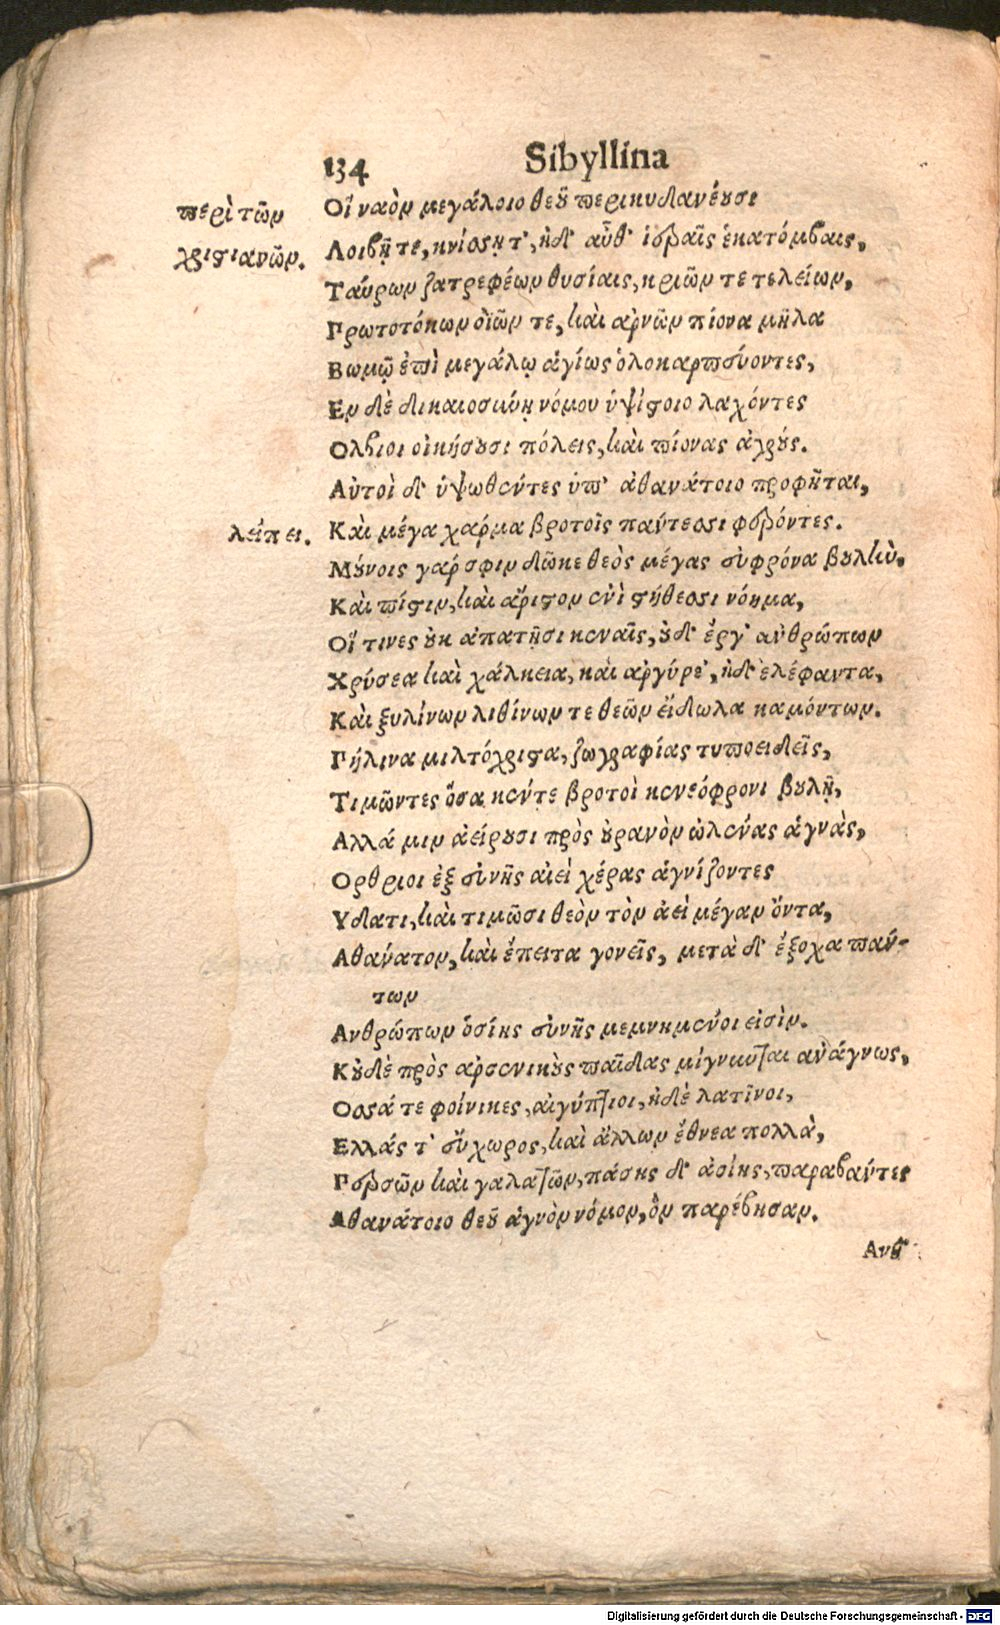 134 Sibyllina
περὶ τῶν
χριστιανῶν.
Οἳ ναὸν μεγάλοιο θεοῦ περικυδανέουσι
Λοιβῇ τε, κνίσσῃ τ', ἠδ' αὖθ' ἱεραῖς ἑκατόμβαις,
Ταύρων ζατρεφέων θυσίαις, κριῶν τε τελείων,
Πρωτοτόκων ὀΐων τε, καὶ ἀρνῶν πίονα μῆλα
Βωμῷ ἐπὶ μεγάλῳ ἁγίως ὁλοκαρπεύοντες,
Εν δὲ δικαιοσύνῃ νόμου ὑψίστοιο λαχόντες
Ολβιοι οἰκήσουσι πόλεις, καὶ πίονας ἀγρούς.
Αὐτοὶ δ' ὑψωθέντες ὑπ' ἀθανάτοιο προφῆται,
λείπει.
Καὶ μέγα χάρμα βροτοῖς πάντεσσι φέροντες.
Μούνοις γάρ σφιν δῶκε θεὸς μέγας εὐφρόνα βουλὴν,
Καὶ πίστιν, καὶ ἄριστον ἐνὶ στήθεσσι νόημα,
Οἵ τινες οὐκ ἀπατῇσι κεναῖς, οὐδ' ἔργ' ἀνθρώπων
Χρύσεα καὶ χάλκεια, καὶ ἀργύρε', ἠδ' ἐλέφαντα,
Καὶ ξυλίνων λιθίνων τε θεῶν εἴδωλα καμόντων.
Πήλινα μιλτόχριστα, ζωγραφίας τυποειδεῖς,
Τιμῶντες ὅσα κέν τε βροτοὶ κενεόφρονι βουλῇ,
Αλλά μιν ἀείρουσι πρὸς οὐρανὸν ὠλένας ἁγνὰς,
Ορθριοι ἐξ εὐνῆς αἰεὶ χέρας ἁγνίζοντες
Υδατι, καὶ τιμῶσι θεὸν τὸν ἀεὶ μέγαν ὄντα,
Αθάνατον, καὶ ἔπειτα γονεῖς, μετὰ δ' ἔξοχα πάν-
των
Ανθρώπων ὁσίης εὐνῆς μεμνημένοι εἰσὶν.
Κοὐδὲ πρὸς ἀρσενικοὺς παῖδας μίγνυνται ἀνάγνως,
Οσσά τε φοίνικες, αἰγύπτιοι, ἠδὲ λατῖνοι,
Ελλάς τ' εὔχωρος, καὶ ἄλλων ἔθνεα πολλὰ,
Περσῶν καὶ γαλατῶν, πάσης δ' ἀσίης, παραβάντες
Αθανάτοιο θεοῦ ἁγνὸν νόμον, ὃν παρέβησαν.
Digitalisierung gefördert durch die Deutsche Forschungsgemeinschaft - DFG